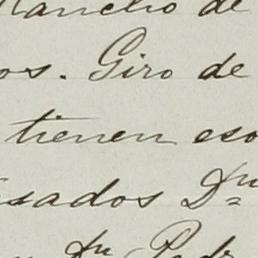 Rancho de
os. Giro de
tienen eso
sados Dn
Dn Pedr